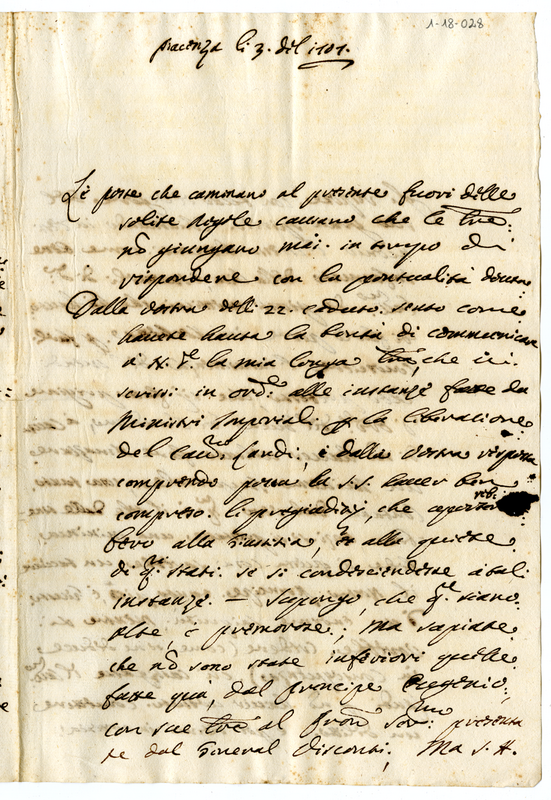 1-18-028
Piacenza li 3. del 1707.
Le poste che caminano al presente fuori delle
solite regole causano che le lre:
nō giungano mai in tempo di
rispondere con la pontualità douuta
Dalla vostra delli 22. caduto sento come
hauete hauta la bontà di communicar
à N. S. la mia longa lrã, che ui
scrissi in ord.e alle instanze fatte da
Ministri Imperiali p la liberacione
del Cau.re Landi, e dalla vostra risposta
comprendo possa la S.S. hauer ben
compreso li pregiudizj, che aportereb.
bero alla Giustizia, et alla quiete
di q.i stati se si condescendesse à tali
instanze. — Supongo, che q.te siano
alte, è premurose; Ma sapiate
che nō sono state inferiori quelle
fatte quà, dal Principe Eugenio,
con sue lrẽ al Pron̄ Ser.mo presenta
te dal General Visconti, Ma S. A.